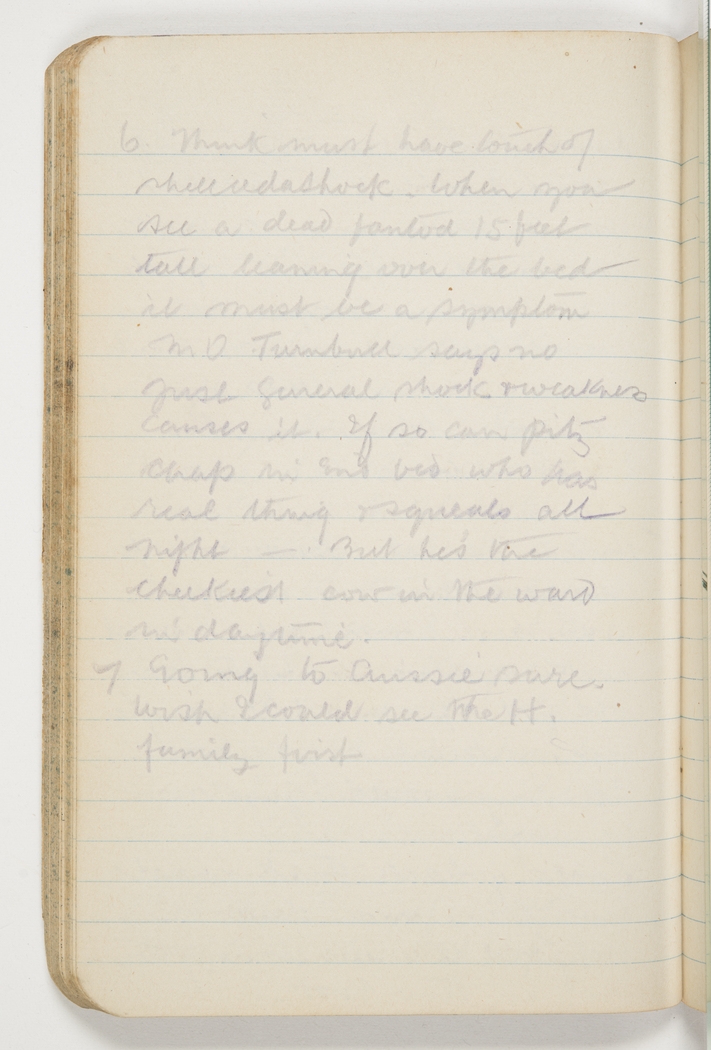 6. Think must have touch of
shock. When you
see a dead fantod 15 feet
tall leaning over the bed
it must be a symptom
M O Turnbull says no
just general shock & weakness
causes it. If so can pity
chap in End bed who has
real thing & squeals all
night — But he's the
cheekiest cow in the ward
in daytime.
7 Going to Aussie sure.
Wish I could see the H.
family first